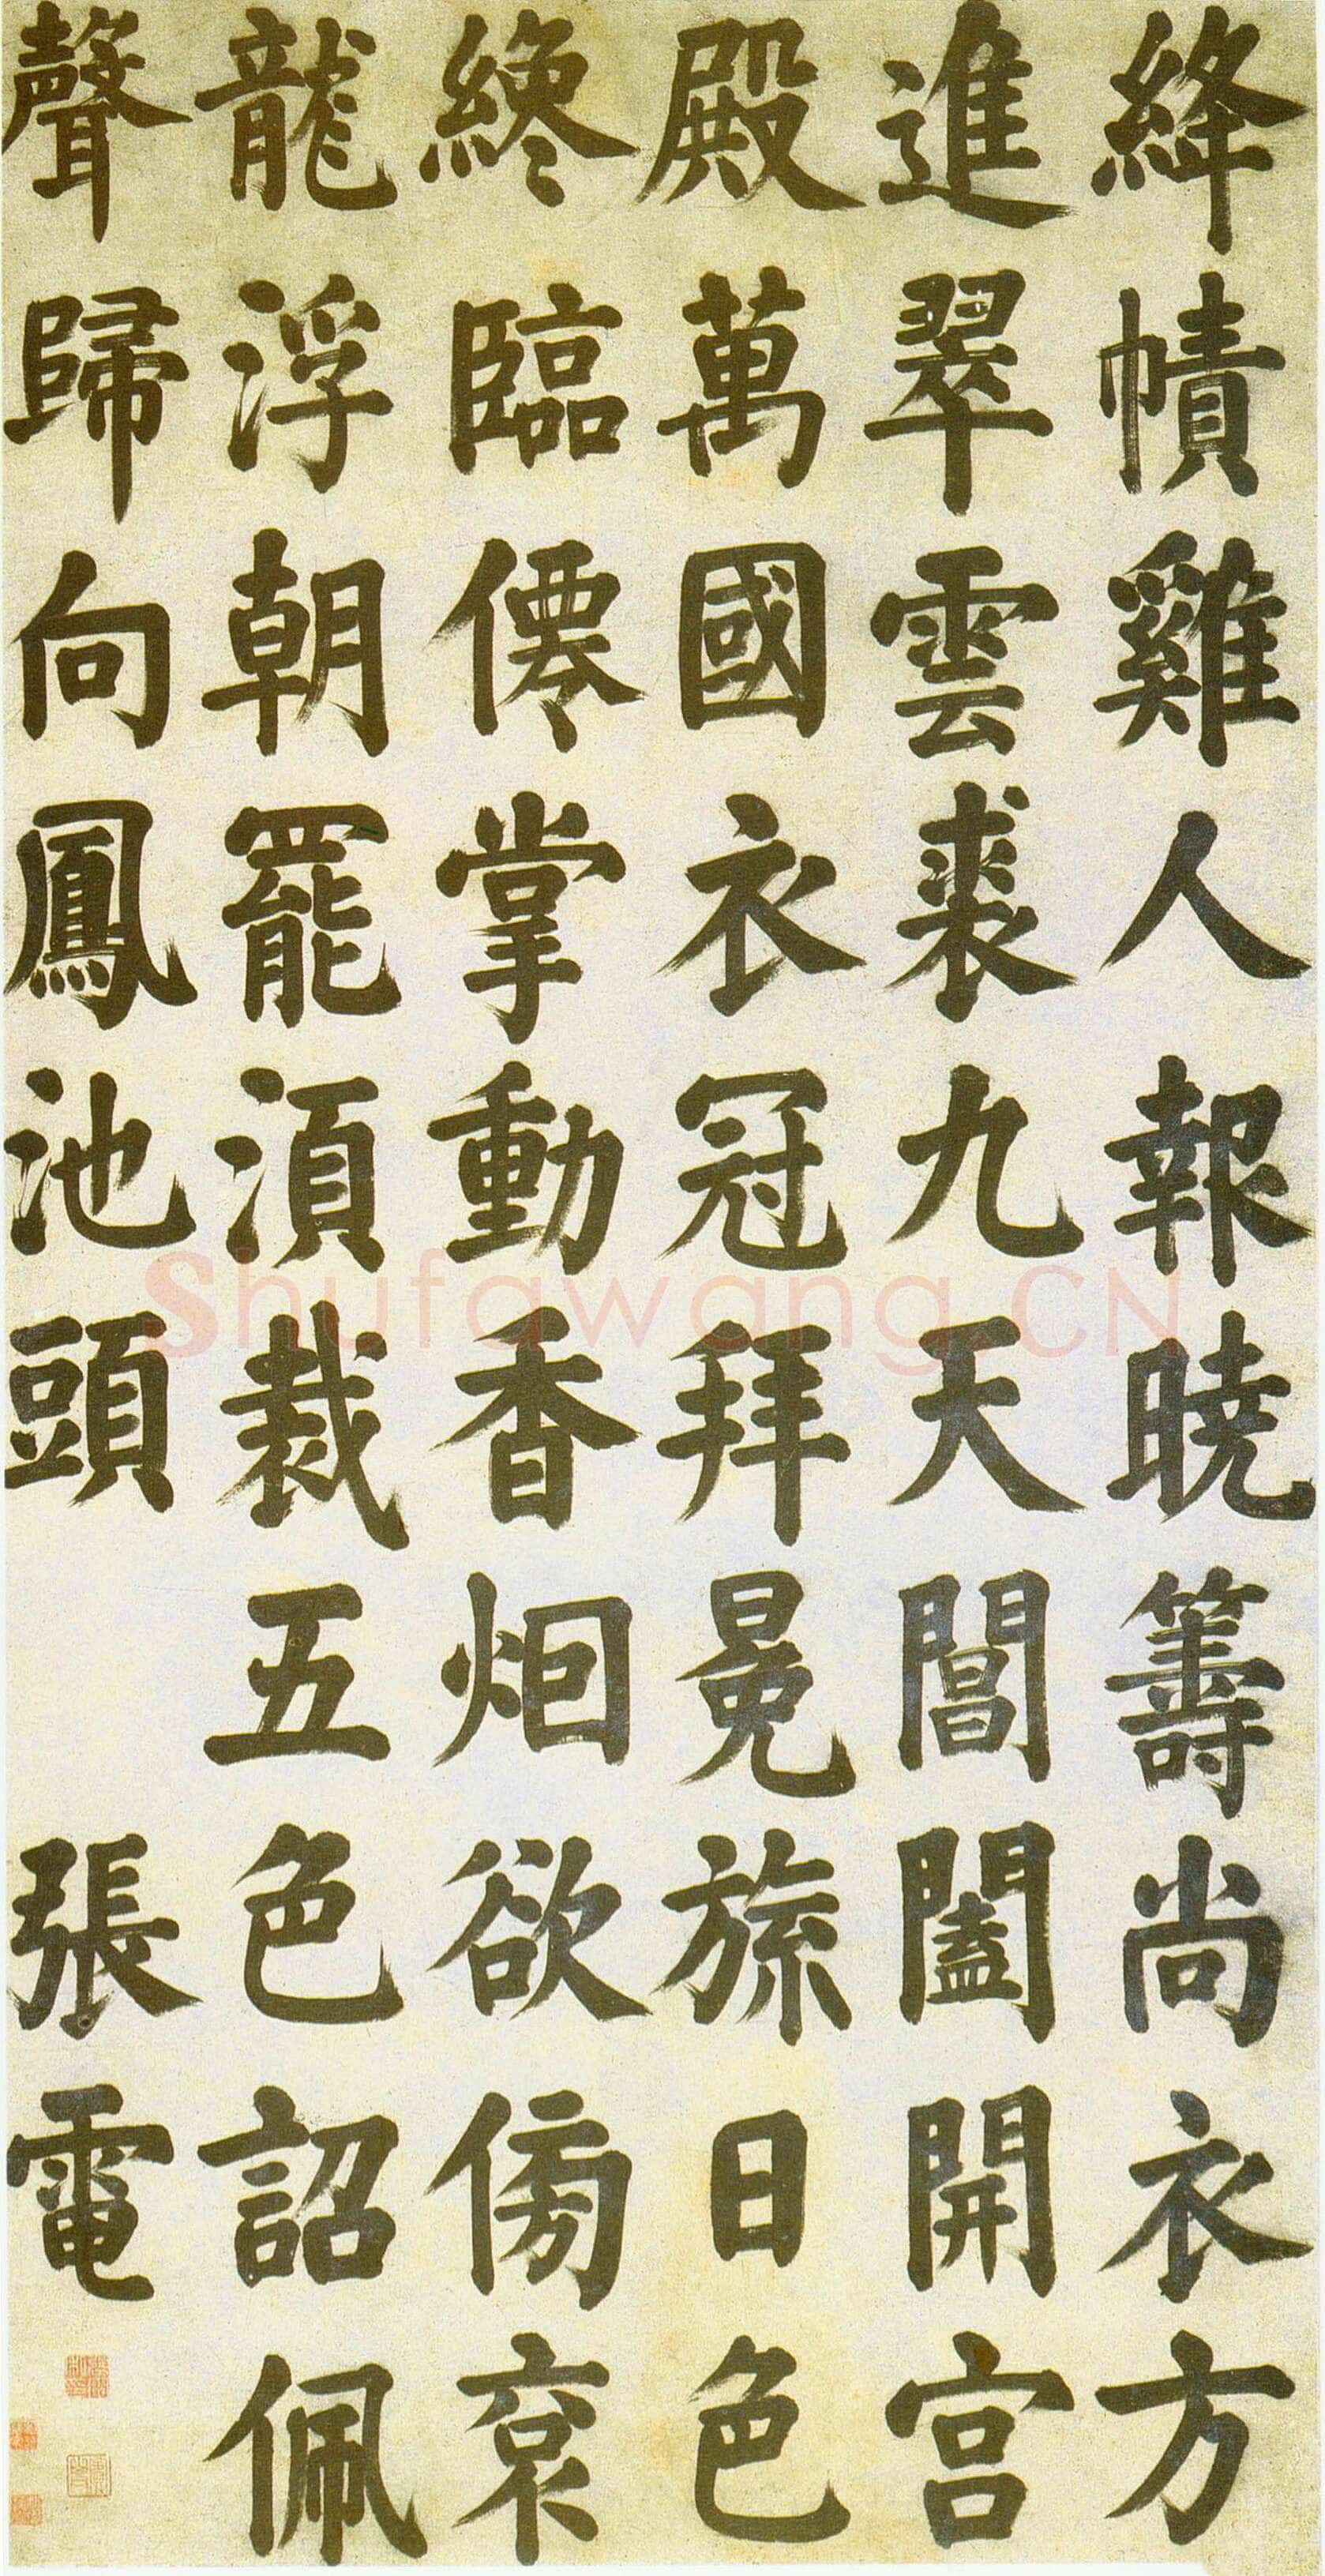 絳幘雞人報曉籌尚衣方
進翠雲裘九天閶闔開宫
殿萬國衣冠拜冕旒日色
終臨僊掌動香烟欲傍衮
龍浮朝罷須裁五色詔佩
聲歸向鳳池頭 張電
Shufawang.CN